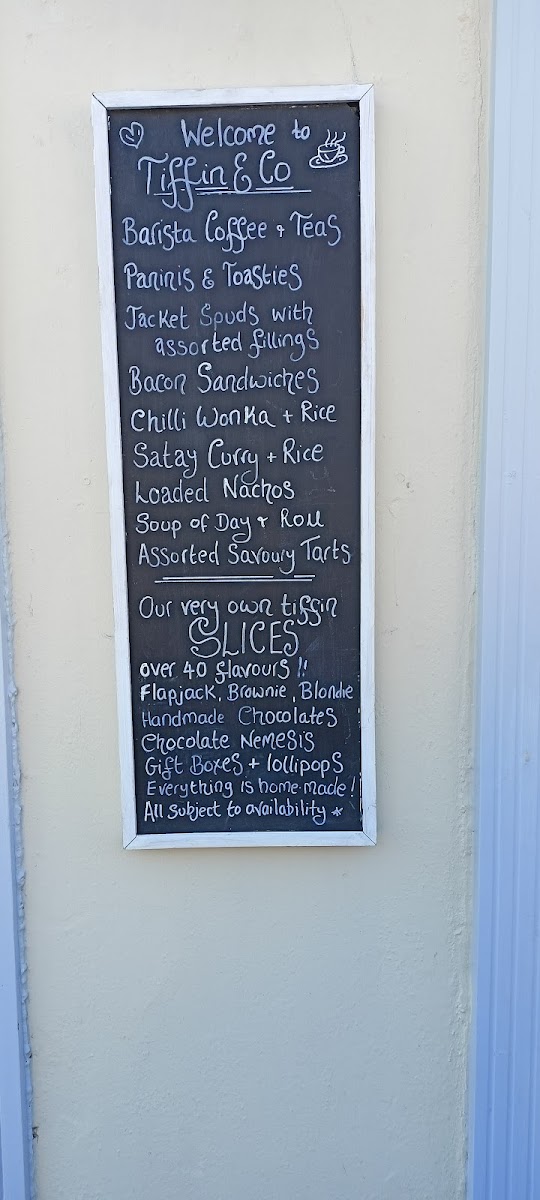 Welcome to
Tiffin & Co
Barista Coffee + Teas
Paninis & Toasties
Jacket Spuds with
assorted fillings
Bacon Sandwiches
Chilli Wonka + Rice
Satay Curry + Rice
Loaded Nachos
Soup of Day + Roll
Assorted Savoury Tarts
Our very own tiffin
SLICES
over 40 flavours !!
Flapjack, Brownie, Blondie
Handmade Chocolates
Chocolate Nemesis
Gift Boxes + lollipops
Everything is home-made!
All subject to availability *